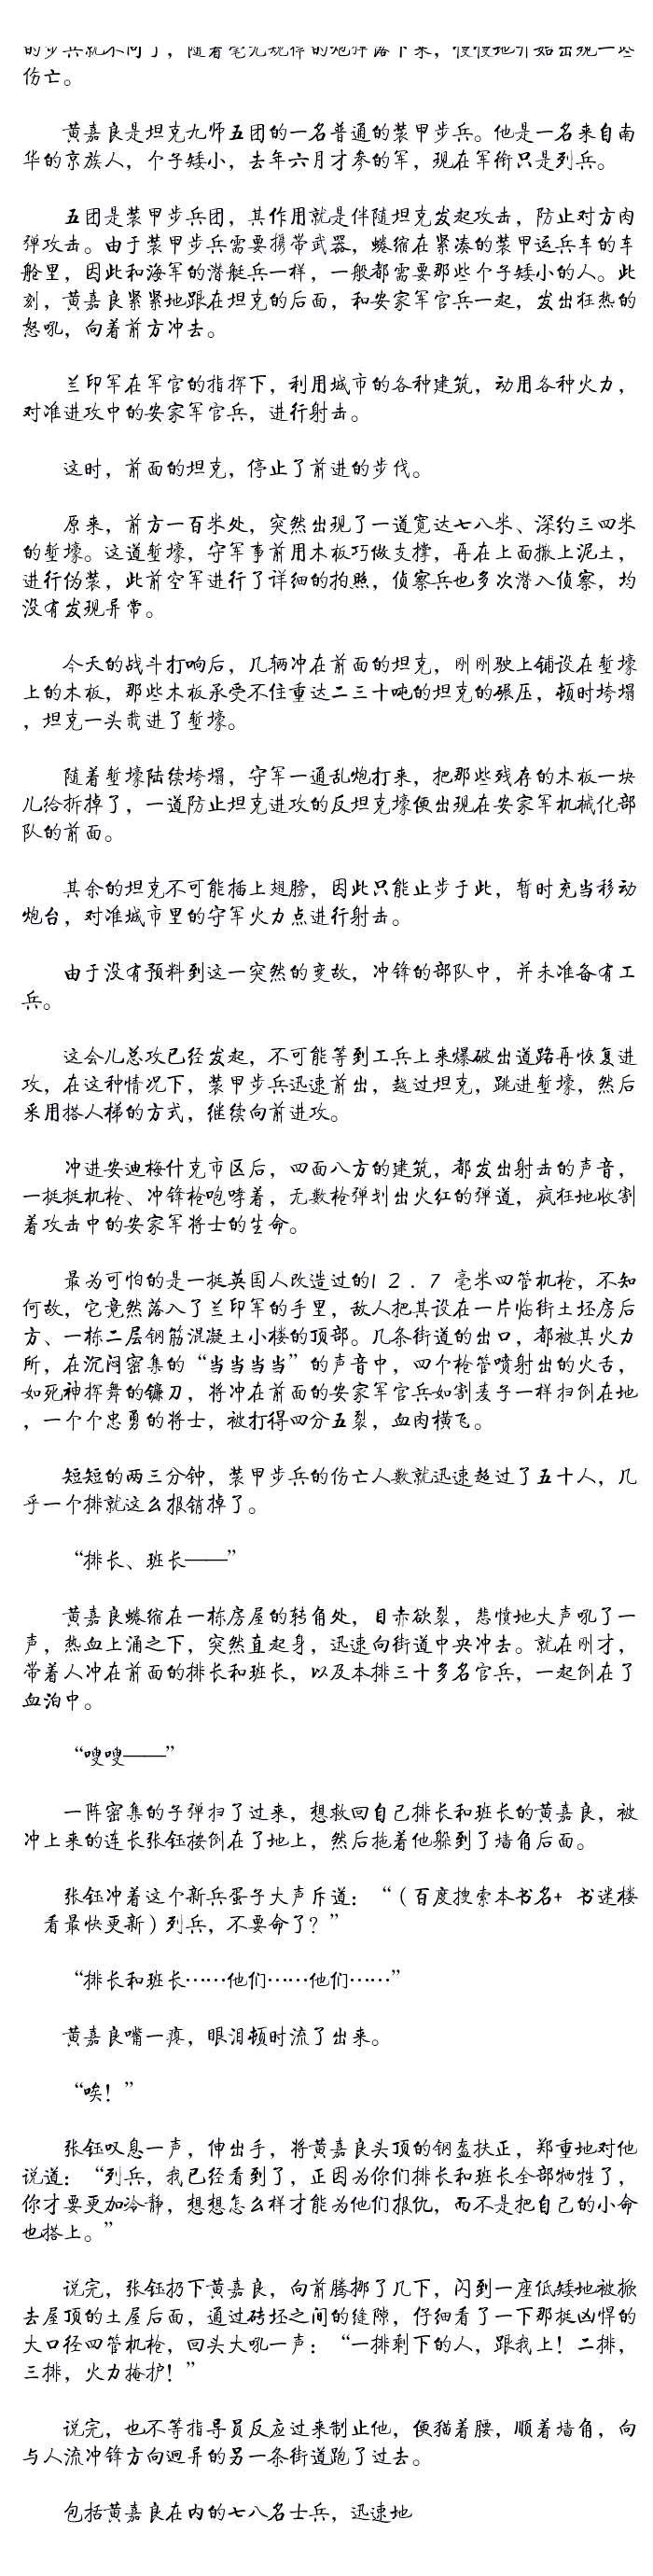 的步兵就不同了，随着毫无规律的炮弹落下来，慢慢地开始出现一些
伤亡。
黄嘉良是坦克九师五团的一名普通的装甲步兵。他是一名来自南
华的京族人，个子矮小，去年六月才参的军，现在军衔只是列兵。
五团是装甲步兵团，其作用就是伴随坦克发起攻击，防止对方肉
弹攻击。由于装甲步兵需要携带武器，蜷缩在紧凑的装甲运兵车的车
舱里，因此和海军的潜艇兵一样，一般都需要那些个子矮小的人。此
刻，黄嘉良紧紧地跟在坦克的后面，和安家军官兵一起，发出狂热的
怒吼，向着前方冲去。
兰印军在军官的指挥下，利用城市的各种建筑，动用各种火力，
对准进攻中的安家军官兵，进行射击。
这时，前面的坦克，停止了前进的步伐。
原来，前方一百米处，突然出现了一道宽达七八米、深约三四米
的堑壕。这道堑壕，守军事前用木板巧做支撑，再在上面撒上泥土，
进行伪装，此前空军进行了详细的拍照，侦察兵也多次潜入侦察，均
没有发现异常。
今天的战斗打响后，几辆冲在前面的坦克，刚刚驶上铺设在堑壕
上的木板，那些木板承受不住重达二三十吨的坦克的碾压，顿时垮塌
，坦克一头栽进了堑壕。
随着堑壕陆续垮塌，守军一通乱炮打来，把那些残存的木板一块
儿给拆掉了，一道防止坦克进攻的反坦克壕便出现在安家军机械化部
队的前面。
其余的坦克不可能插上翅膀，因此只能止步于此，暂时充当移动
炮台，对准城市里的守军火力点进行射击。
由于没有预料到这一突然的变故，冲锋的部队中，并未准备有工
兵。
这会儿总攻已经发起，不可能等到工兵上来爆破出道路再恢复进
攻，在这种情况下，装甲步兵迅速前出，越过坦克，跳进堑壕，然后
采用搭人梯的方式，继续向前进攻。
冲进安迪梅什克市区后，四面八方的建筑，都发出射击的声音，
一挺挺机枪、冲锋枪咆哮着，无数枪弹划出火红的弹道，疯狂地收割
着攻击中的安家军将士的生命。
最为可怕的是一挺英国人改造过的12．7毫米四管机枪，不知
何故，它竟然落入了兰印军的手里，敌人把其设在一片临街土坯房后
方、一栋二层钢筋混凝土小楼的顶部。几条街道的出口，都被其火力
所，在沉闷密集的“当当当当”的声音中，四个枪管喷射出的火舌，
如死神挥舞的镰刀，将冲在前面的安家军官兵如割麦子一样扫倒在地
，一个个忠勇的将士，被打得四分五裂，血肉横飞。
短短的两三分钟，装甲步兵的伤亡人数就迅速超过了五十人，几
乎一个排就这么报销掉了。
“排长、班长——”
黄嘉良蜷缩在一栋房屋的转角处，目赤欲裂，悲愤地大声吼了一
声，热血上涌之下，突然直起身，迅速向街道中央冲去。就在刚才，
带着人冲在前面的排长和班长，以及本排三十多名官兵，一起倒在了
血泊中。
“嗖嗖——”
一阵密集的子弹扫了过来，想救回自己排长和班长的黄嘉良，被
冲上来的连长张钰按倒在了地上，然后拖着他躲到了墙角后面。
张钰冲着这个新兵蛋子大声斥道：“（百度搜索本书名+ 书迷楼
看最快更新）列兵，不要命了？”
“排长和班长……他们……他们……”
黄嘉良嘴一瘪，眼泪顿时流了出来。
“唉！”
张钰叹息一声，伸出手，将黄嘉良头顶的钢盔扶正，郑重地对他
说道：“列兵，我已经看到了，正因为你们排长和班长全部牺牲了，
你才要更加冷静，想想怎么样才能为他们报仇，而不是把自己的小命
也搭上。”
说完，张钰扔下黄嘉良，向前腾挪了几下，闪到一座低矮地被掀
去屋顶的土屋后面，通过砖坯之间的缝隙，仔细看了一下那挺凶悍的
大口径四管机枪，回头大吼一声：“一排剩下的人，跟我上！二排，
三排，火力掩护！”
说完，也不等指导员反应过来制止他，便猫着腰，顺着墙角，向
与人流冲锋方向迥异的另一条街道跑了过去。
包括黄嘉良在内的七八名士兵，迅速地